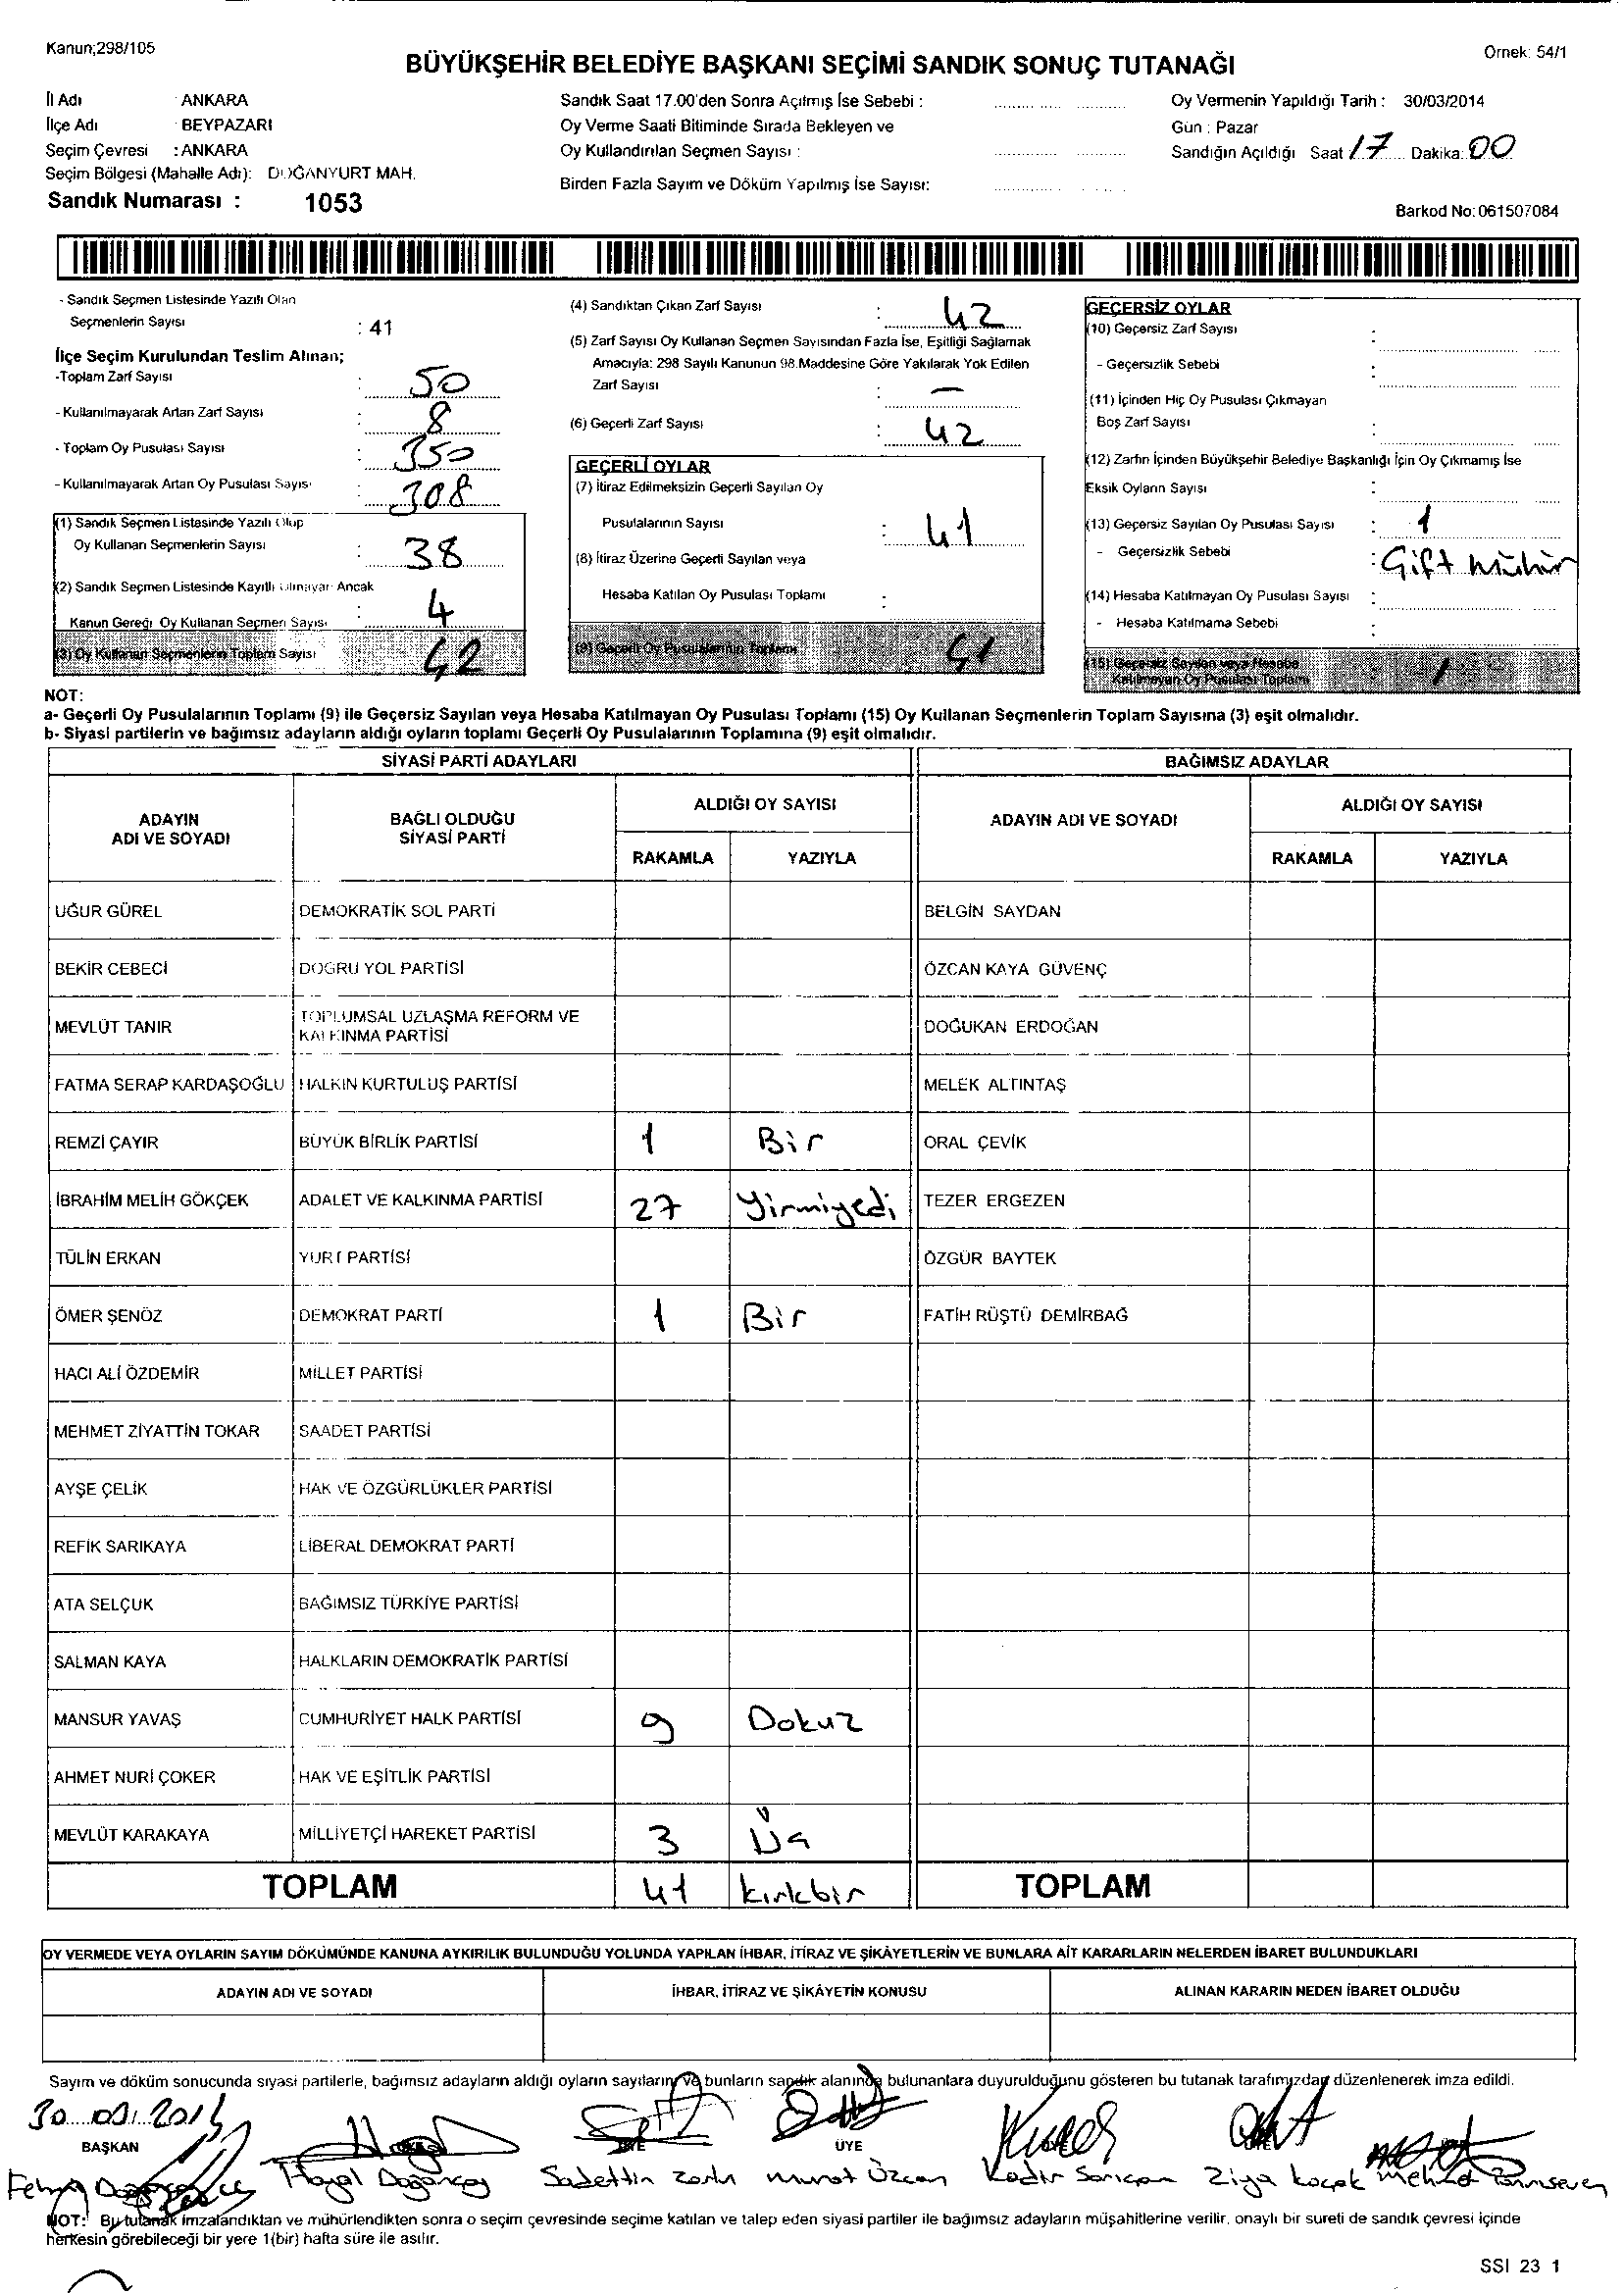 Kanun;298/105
Örnek: 54/1
BÜYÜKŞEHİR BELEDİYE BAŞKANI SEÇİMİ SANDIK SONUÇ TUTANAĞI
İl Adı : ANKARA
İlçe Adı : BEYPAZARI
Seçim Çevresi : ANKARA
Seçim Bölgesi (Mahalle Adı): DOĞANYURT MAH.
Sandık Numarası : 1053
Sandık Saat 17.00'den Sonra Açılmış İse Sebebi :
Oy Verme Saati Bitiminde Sırada Bekleyen ve
Oy Kullandırılan Seçmen Sayısı :
Birden Fazla Sayım ve Döküm Yapılmış İse Sayısı:
Oy Vermenin Yapıldığı Tarih : 30/03/2014
Gün : Pazar
Sandığın Açıldığı Saat 17 Dakika: 00
Barkod No: 061507084
- Sandık Seçmen Listesinde Yazılı Olan
Seçmenlerin Sayısı : 41
İlçe Seçim Kurulundan Teslim Alınan;
-Toplam Zarf Sayısı : 50
- Kullanılmayarak Artan Zarf Sayısı : 8
- Toplam Oy Pusulası Sayısı : 350
- Kullanılmayarak Artan Oy Pusulası Sayısı : 308
(1) Sandık Seçmen Listesinde Yazılı Olup
Oy Kullanan Seçmenlerin Sayısı : 38
(2) Sandık Seçmen Listesinde Kayıtlı Olmayan Ancak
Kanun Gereği Oy Kullanan Seçmen Sayısı : 4
(3) Oy Kullanan Seçmenlerin Toplam Sayısı 42
(4) Sandıktan Çıkan Zarf Sayısı : 42
(5) Zarf Sayısı Oy Kullanan Seçmen Sayısından Fazla İse, Eşitliği Sağlamak
Amacıyla: 298 Sayılı Kanunun 98.Maddesine Göre Yakılarak Yok Edilen
Zarf Sayısı : —
(6) Geçerli Zarf Sayısı : 42
GEÇERLİ OYLAR
(7) İtiraz Edilmeksizin Geçerli Sayılan Oy
Pusulalarının Sayısı : 41
(8) İtiraz Üzerine Geçerli Sayılan veya
Hesaba Katılan Oy Pusulası Toplamı :
(9) Geçerli Oy Pusulalarının Toplamı 41
GEÇERSİZ OYLAR
(10) Geçersiz Zarf Sayısı :
- Geçersizlik Sebebi :
(11) İçinden Hiç Oy Pusulası Çıkmayan
Boş Zarf Sayısı :
(12) Zarfın İçinden Büyükşehir Belediye Başkanlığı İçin Oy Çıkmamış İse
Eksik Oyların Sayısı :
(13) Geçersiz Sayılan Oy Pusulası Sayısı : 1
- Geçersizlik Sebebi : Çift mühür
(14) Hesaba Katılmayan Oy Pusulası Sayısı :
- Hesaba Katılmama Sebebi :
(15) Geçersiz Sayılan veya Hesaba
Katılmayan Oy Pusulası Toplamı 1
NOT:
a- Geçerli Oy Pusulalarının Toplamı (9) ile Geçersiz Sayılan veya Hesaba Katılmayan Oy Pusulası Toplamı (15) Oy Kullanan Seçmenlerin Toplam Sayısına (3) eşit olmalıdır.
b- Siyasi partilerin ve bağımsız adayların aldığı oyların toplamı Geçerli Oy Pusulalarının Toplamına (9) eşit olmalıdır.
SİYASİ PARTİ ADAYLARI BAĞIMSIZ ADAYLAR
ADAYIN ADI VE SOYADI BAĞLI OLDUĞU SİYASİ PARTİ ALDIĞI OY SAYISI ADAYIN ADI VE SOYADI ALDIĞI OY SAYISI
RAKAMLA YAZIYLA RAKAMLA YAZIYLA
UĞUR GÜREL DEMOKRATİK SOL PARTİ BELGİN SAYDAN
BEKİR CEBECİ DOĞRU YOL PARTİSİ ÖZCAN KAYA GÜVENÇ
MEVLÜT TANIR TOPLUMSAL UZLAŞMA REFORM VE KALKINMA PARTİSİ DOĞUKAN ERDOĞAN
FATMA SERAP KARDAŞOĞLU HALKIN KURTULUŞ PARTİSİ MELEK ALTINTAŞ
REMZİ ÇAYIR BÜYÜK BİRLİK PARTİSİ 1 Bir ORAL ÇEVİK
İBRAHİM MELİH GÖKÇEK ADALET VE KALKINMA PARTİSİ 27 Yirmiyedi TEZER ERGEZEN
TÜLİN ERKAN YURT PARTİSİ ÖZGÜR BAYTEK
ÖMER ŞENÖZ DEMOKRAT PARTİ 1 Bir FATİH RÜŞTÜ DEMİRBAĞ
HACI ALİ ÖZDEMİR MİLLET PARTİSİ
MEHMET ZİYATTİN TOKAR SAADET PARTİSİ
AYŞE ÇELİK HAK VE ÖZGÜRLÜKLER PARTİSİ
REFİK SARIKAYA LİBERAL DEMOKRAT PARTİ
ATA SELÇUK BAĞIMSIZ TÜRKİYE PARTİSİ
SALMAN KAYA HALKLARIN DEMOKRATİK PARTİSİ
MANSUR YAVAŞ CUMHURİYET HALK PARTİSİ 9 Dokuz
AHMET NURİ ÇOKER HAK VE EŞİTLİK PARTİSİ
MEVLÜT KARAKAYA MİLLİYETÇİ HAREKET PARTİSİ 3 Üç
TOPLAM 41 kırkbir TOPLAM
OY VERMEDE VEYA OYLARIN SAYIM DÖKÜMÜNDE KANUNA AYKIRILIK BULUNDUĞU YOLUNDA YAPILAN İHBAR, İTİRAZ VE ŞİKÂYETLERİN VE BUNLARA AİT KARARLARIN NELERDEN İBARET BULUNDUKLARI
ADAYIN ADI VE SOYADI İHBAR, İTİRAZ VE ŞİKÂYETİN KONUSU ALINAN KARARIN NEDEN İBARET OLDUĞU
Sayım ve döküm sonucunda siyasi partilerle, bağımsız adayların aldığı oyların sayılarını ve bunların sandık alanında bulunanlara duyurulduğunu gösteren bu tutanak tarafımızdan düzenlenerek imza edildi.
30.03.2014
BAŞKAN ÜYE
Hayal Doğancay Sadettin Murat Özcan Kadir Sarıcan Ziya Koçak Mehmet
NOT: Bu tutanak imzalandıktan ve mühürlendikten sonra o seçim çevresinde seçime katılan ve talep eden siyasi partiler ile bağımsız adayların müşahitlerine verilir, onaylı bir sureti de sandık çevresi içinde
herkesin görebileceği bir yere 1(bir) hafta süre ile asılır.
SSI 23 1